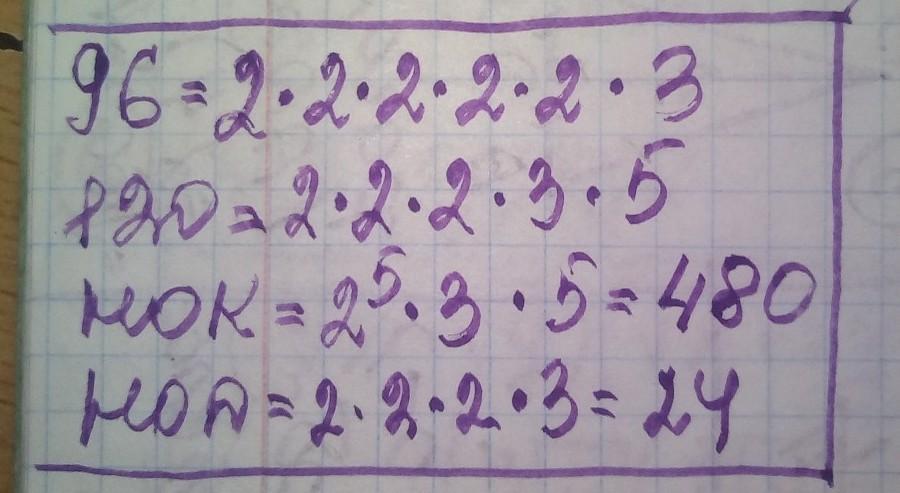 96 = 2 · 2 · 2 · 2 · 2 · 3
120 = 2 · 2 · 2 · 3 · 5
НОК = 2⁵ · 3 · 5 = 480
НОД = 2 · 2 · 2 · 3 = 24